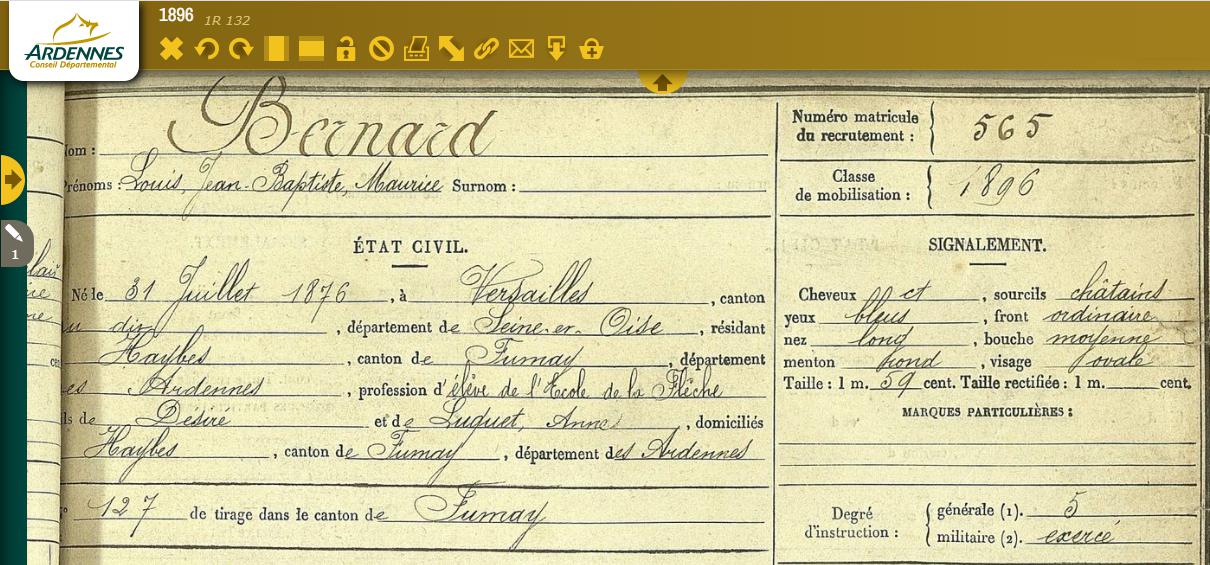 1896 1R 132
ARDENNES
Conseil Départemental
1
Bernard
Nom :
Prénoms : Louis, Jean-Baptiste, Maurice Surnom :
Numéro matricule
du recrutement : 565
Classe
de mobilisation : 1896
ÉTAT CIVIL.
Né le 31 Juillet 1876, à Versailles, canton
du dit, département de Seine-et-Oise, résidant
Haybes, canton de Fumay, département
es Ardennes, profession d'élève de l'Ecole de la Flèche
ls de Désiré et de Luquet, Anne, domiciliés
Haybes, canton de Fumay, département des Ardennes
127 de tirage dans le canton de Fumay
SIGNALEMENT.
Cheveux et, sourcils châtains
yeux bleus, front ordinaire
nez long, bouche moyenne
menton rond, visage ovale
Taille : 1 m. 59 cent. Taille rectifiée : 1 m. cent.
MARQUES PARTICULIÈRES :
Degré
d'instruction :
générale (1). 5
militaire (2). exercé